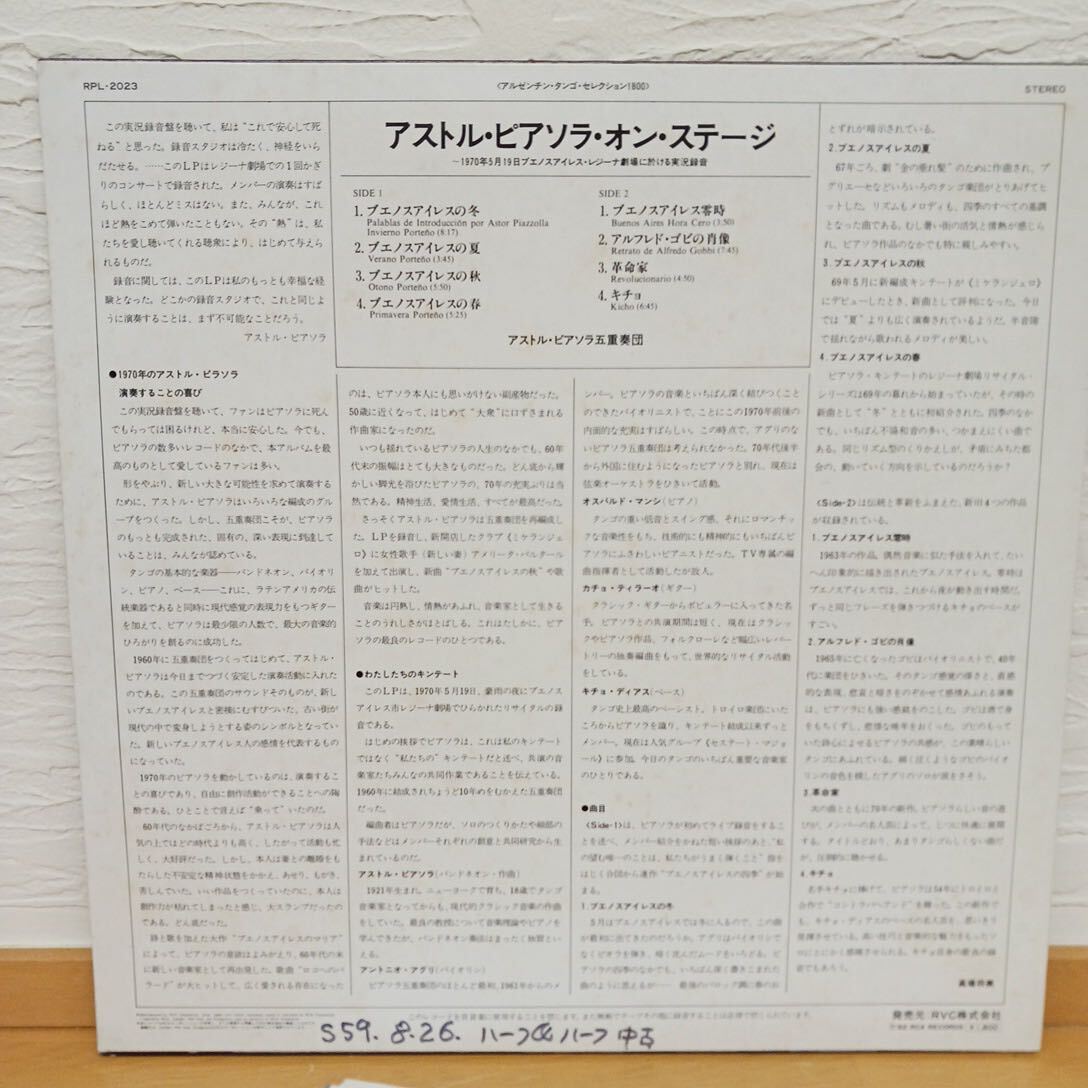 RPL-2023
〈アルゼンチン・タンゴ・セレクション1800〉
STEREO
この実況録音盤を聴いて、私は“これで安心して死
ねる”と思った。録音スタジオは冷たく、神経をいら
だたせる。……このLPはレジーナ劇場での1回かぎ
りのコンサートで録音された。メンバーの演奏はすば
らしく、ほとんどミスはない。また、みんなが、これ
ほど熱をこめて弾いたこともない。その“熱”は、私
たちを愛し聴いてくれる聴衆により、はじめて与えら
れるものだ。
録音に関しては、このLPは私のもっとも幸福な経
験となった。どこかの録音スタジオで、これと同じよ
うに演奏することは、まず不可能なことだろう。
アストル・ピアソラ
アストル・ピアソラ・オン・ステージ
~1970年5月19日ブエノスアイレス・レジーナ劇場に於ける実況録音
SIDE 1
1. ブエノスアイレスの冬
Palablas de Introducción por Astor Piazzolla
Invierno Porteño (8:17)
2. ブエノスアイレスの夏
Verano Porteño (3:45)
3. ブエノスアイレスの秋
Otono Porteño (5:50)
4. ブエノスアイレスの春
Primavera Porteño (5:25)
SIDE 2
1. ブエノスアイレス零時
Buenos Aires Hora Cero (3:50)
2. アルフレド・ゴビの肖像
Retrato de Alfredo Gobbi (7:45)
3. 革命家
Revolucionario (4:50)
4. キチョ
Kicho (6:45)
アストル・ピアソラ五重奏団
●1970年のアストル・ピラソラ
演奏することの喜び
この実況録音盤を聴いて、ファンはピアソラに死ん
でもらっては困るけれど、本当に安心した。今でも、
ピアソラの数多いレコードのなかで、本アルバムを最
高のものとして愛しているファンは多い。
形をやぶり、新しい大きな可能性を求めて演奏する
ために、アストル・ピアソラはいろいろな編成のグル
ープをつくった。しかし、五重奏団こそが、ピアソラ
のもっとも完成された、固有の、深い表現に到達して
いることは、みんなが認めている。
タンゴの基本的な楽器——バンドネオン、バイオリ
ン、ピアノ、ベース——これに、ラテンアメリカの伝
統楽器であると同時に現代感覚の表現力をもつギター
を加えて、ピアソラは最少限の人数で、最大の音楽的
ひろがりを創るのに成功した。
1960年に五重奏団をつくってはじめて、アストル・
ピアソラは今日までつづく安定した演奏活動に入れた
のである。この五重奏団のサウンドそのものが、新し
いブエノスアイレスと密接にむすびついた。古い街が
現代の中で変身しようとする姿のシンボルとなってい
た。新しいブエノスアイレス人の感情を代表するもの
になっていた。
1970年のピアソラを動かしているのは、演奏するこ
との喜びであり、自由に創作活動ができることへの陶
酔である。ひとことで言えば“乗って”いたのだ。
60年代のなかばごろから、アストル・ピアソラは人
気の上ではどの時代よりも高く、したがって活動も忙
しく、大好評だった。しかし、本人は妻との離婚をも
たらした不安定な精神状態をかかえ、あせり、もがき、
苦しんでいた。いい作品をつくっていたのに、本人は
創作力が枯れてしまったと感じ、大スランプだったの
である。どん底だった。
詩と歌を加えた大作“ブエノスアイレスのマリア”
によって、ピアソラの意欲はよみがえり、60年代の末
に新しい音楽家として再出発した。歌曲“ロコへのバ
ラード”が大ヒットして、広く愛される存在になった
のは、ピアソラ本人にも思いがけない副産物だった。
50歳に近くなって、はじめて“大衆”に口ずさまれる
作曲家になったのだ。
いつも揺れているピアソラの人生のなかでも、60年
代末の振幅はとても大きなものだった。どん底から輝
かしい脚光を浴びたピアソラの、70年の充実ぶりは当
然である。精神生活、愛情生活、すべてが最高だった。
さっそくアストル・ピアソラは五重奏団を再編成し
た。LPを録音し、新開店したクラブ《ミケランジェ
ロ》に女性歌手(新しい妻)アメリータ・バルタール
を加えて出演し、新曲“ブエノスアイレスの秋”や歌
曲がヒットした。
音楽は円熟し、情熱があふれ、音楽家として生きる
ことのうれしさがほとばしる。これはたしかに、ピア
ソラの最良のレコードのひとつである。
●わたしたちのキンテート
このLPは、1970年5月19日、豪雨の夜にブエノス
アイレス市レジーナ劇場でひらかれたリサイタルの録
音である。
はじめの挨拶でピアソラは、これは私のキンテート
ではなく“私たちの”キンテートだと述べ、共演の音
楽家たちみんなの共同作業であることを伝えている。
1960年に結成されちょうど10年めをむかえた五重奏団
だった。
編曲者はピアソラだが、ソロのつくりかたや細部の
手法などはメンバーそれぞれの創意と共同研究から生
まれているのだ。
アストル・ピアソラ(バンドネオン・作曲)
1921年生まれ。ニューヨークで育ち、18歳でタンゴ
音楽家となってからも、現代的クラシック音楽の作曲
をしていた。最良の教授について音楽理論やピアノを
学んできたが、バンドネオン奏法はまったく独習とい
える。
アントニオ・アグリ(バイオリン)
ピアソラ五重奏団のほとんど最初、1961年からのメ
ンバー。ピアソラの音楽といちばん深く結びつくこと
のできたバイオリニストで、ことにこの1970年前後の
内面的な充実はすばらしい。この時点で、アグリのな
いピアソラ五重奏団は考えられなかった。70年代後半
から外国に住むようになったピアソラと別れ、現在は
弦楽オーケストラをひきいて活動。
オスバルド・マンシ(ピアノ)
タンゴの重い低音とスイング感、それにロマンチッ
クな音楽性をもち、技術的にも精神的にもいちばんピ
アソラにふさわしいピアニストだった。TV専属の編
曲指揮者として活動したが故人。
カチョ・ティラーオ(ギター)
クラシック・ギターからポピュラーに入ってきた名
手。ピアソラとの共演期間は短く、現在はクラシッ
クやピアソラ作品、フォルクローレなど幅広いレパー
トリーの独奏編曲をもって、世界的なリサイタル活動
をしている。
キチョ・ディアス(ベース)
タンゴ史上最高のベーシスト。トロイロ楽団にいた
ころからピアソラを識り、キンテート結成以来ずっと
メンバー。現在は人気グループ《セステート・マジョ
ール》に参加、今日のタンゴのいちばん重要な音楽家
のひとりである。
●曲目
〈Side-1〉は、ピアソラが初めてライブ録音をするこ
とを述べ、メンバー紹介をかねた短い挨拶のあと、“私
の望む唯一のことは、私たちがうまく弾くこと”指を
はじく合図から連作“ブエノスアイレスの四季”が始
まる。
1.ブエノスアイレスの冬
5月はブエノスアイレスでは冬に入るので、この曲
が最初に出てきたのだろうか。アグリはバイオリンで
なくビオラを弾き、暗く沈んだムードをいろどる。ピ
アソラの四季のなかでも、いちばん深く書きこまれた
曲のように思えるが——
とずれが暗示されている。
2.ブエノスアイレスの夏
67年ごろ、劇“金の垂れ髪”のために作曲され、プ
グリエーセなどいろいろのタンゴ楽団がとりあげてヒ
ットした。リズムもメロディも、四季のすべての基調
となった曲である。むし暑い街の活気と情熱が感じら
れ、ピアソラ作品のなかでも特に親しみやすい。
3.ブエノスアイレスの秋
69年5月に新編成キンテートが《ミケランジェロ》
にデビューしたとき、新曲として評判になった。今日
では“夏”よりも広く演奏されているようだ。半音階
で揺れながら歌われるメロディが美しい。
4.ブエノスアイレスの春
ピアソラ・キンテートのレジーナ劇場リサイタル・
シリーズは69年の暮れから始まっていたが、その時の
新曲として“冬”とともに初紹介された。四季のなか
でも、いちばん不協和音の多い、つかまえにくい曲で
ある。同じリズム型のくりかえしが、矛盾にみちた都
会の、動いていく方向を示しているのだろうか?
〈Side-2〉は伝統と革新をふまえた、新旧4つの作品
が収録されている。
1.ブエノスアイレス零時
1963年の作品。偶然音楽に似た手法を入れて、たい
へん印象的に描き出されたブエノスアイレス。零時は
ブエノスアイレスでは、これから夜が動き出す時間だ。
ずっと同じフレーズを弾きつづけるキチョのベースが
すごい。
2.アルフレド・ゴビの肖像
1965年に亡くなったゴビはバイオリニストで、40年
代に楽団をひきいた。
3.革命家
4.キチョ
発売元 RVC株式会社
S59. 8.26. ハーフ&ハーフ 中古